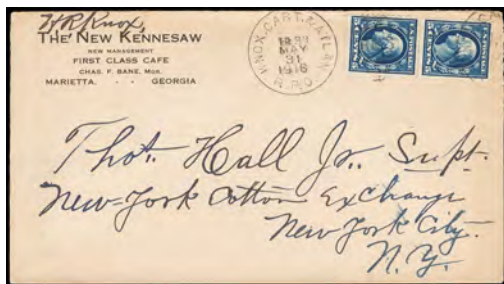 W R Knox,
THE NEW KENNESAW
NEW MANAGEMENT
FIRST CLASS CAFE
CHAS. F. BANE, MGR.
MARIETTA. . . GEORGIA
KNOX. CART. & ATLAN.
MAY
31
1916
R.P.O.
Thos. Hall Jr. Supt.
New=York Cotton Exchange
New York City.
N.Y.